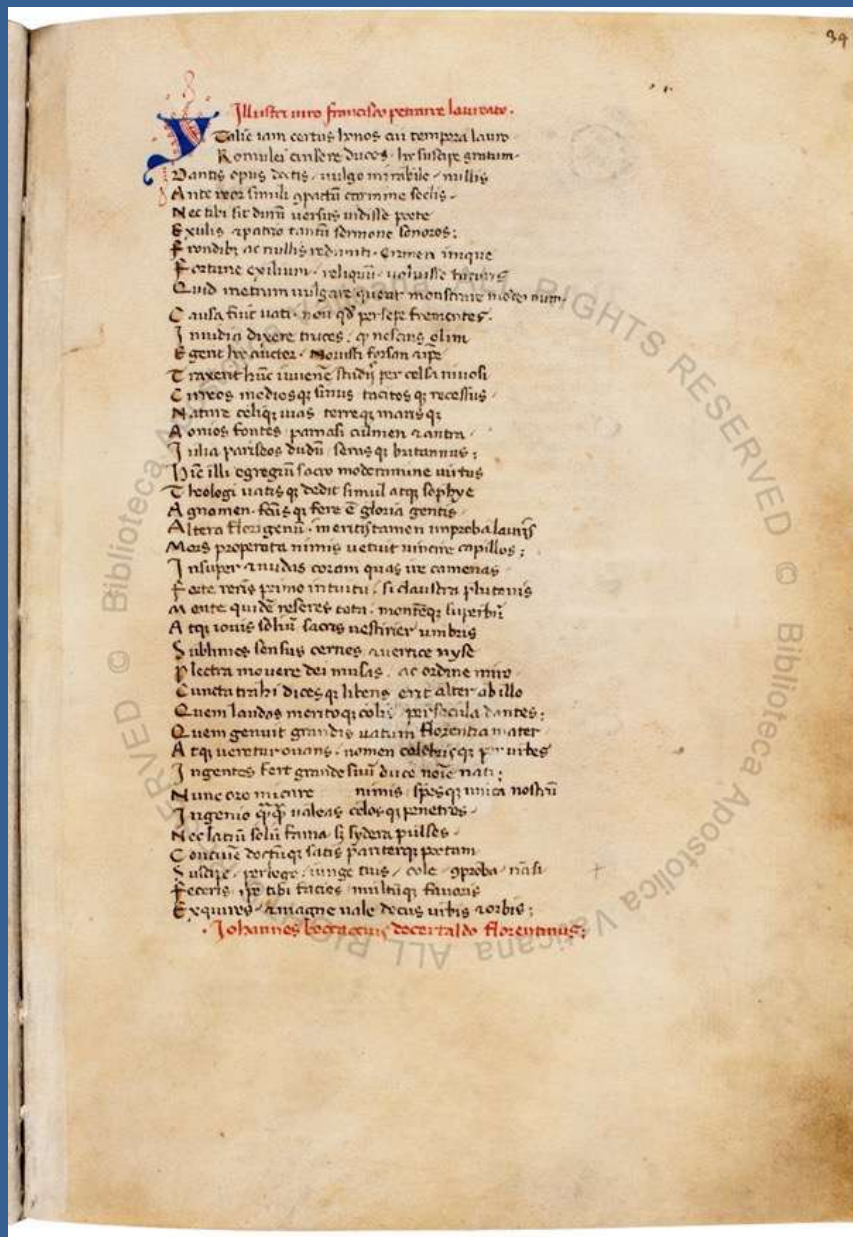 34
Illustri uiro francisco petrarce laureato.
Ytalie iam certus honos cui tempora lauro
Romulei cinsere duces. hoc suscipe gratum
Dantis opus doctis, uulgo mirabile, nullis
Ante reor simili 9pactũ carmine seclis.
Nec tibi sit durũ uersus uidisse poete
Exulis 7 patrio tantũ sermone sonoros;
Frondibȝ ac nullis redimiti. crimen inique
Fortune exilium. reliquũ. uoluisse futuris
Quid metrum uulgare queat monstrare modernum.
Causa fuit uati. non qđ persepe frementes.
Inuidia dixere truces. qđ nescius olim
Egerit hec auctor. Nouisti forsan 7 ipse
Traxerit hũc iuuenẽ studiȷ per celsa niuosi
Cirreos mediosqȝ sinus tacitosqȝ recessus
Nature celiqȝ uias terreqȝ marisqȝ
Aonios fontes parnasi culmen 7 antra
Iulia pariseos dudũ serusqȝ britannus;
Hĩc illi egregiũ sacro moderamine uirtus
Theologi uatisqȝ dedit simul atqȝ sophye
Agnomen. fc̃usqȝ fere ẽ gloria gentis
Altera florigenũ. meritis tamen improba lauris
Mors properata nimis uetuit uincire capillos;
Insuper 7 nudas coram quas ire camenas
Forte reris primo intuitu. si claustra plutonis
Mente quidẽ reseres tota. montẽqȝ superbũ
Atqȝ iouis soliũ sacris uestirier umbris
Sublimes sensus cernes 7 uertice nyse
Plectra mouere dei musas. ac ordine miro
Cuncta trahi dicesqȝ libens erit alter ab illo
Quem laudas meritoqȝ colis per secula dantes;
Quem genuit grandis uatum florentia mater
Atqȝ ueretur ouans. nomen celebrisqȝ per urbes
Ingentes fert grande suũ duce noĩe nati;
Nunc oro mi care nimis spesqȝ unica nostrũ
Ingenio quãquã ualeas celosqȝ penetres
Nec latiũ solũ fama sȝ sydera pulses
Conciuẽ doctũqȝ satis pariterqȝ poetam
Suscipe, perlege, iunge tuis, cole, 9proba, nã si
Feceris ipse tibi facies multũqȝ fauoris
Exquires. 7 magne uale decus urbis 7 orbis;
Iohannes boccaccius de certaldo florentinus;
© Biblioteca Apostolica Vaticana ALL RIGHTS RESERVED © Biblioteca Apostolica Vaticana ALL RIGHTS RESERVED